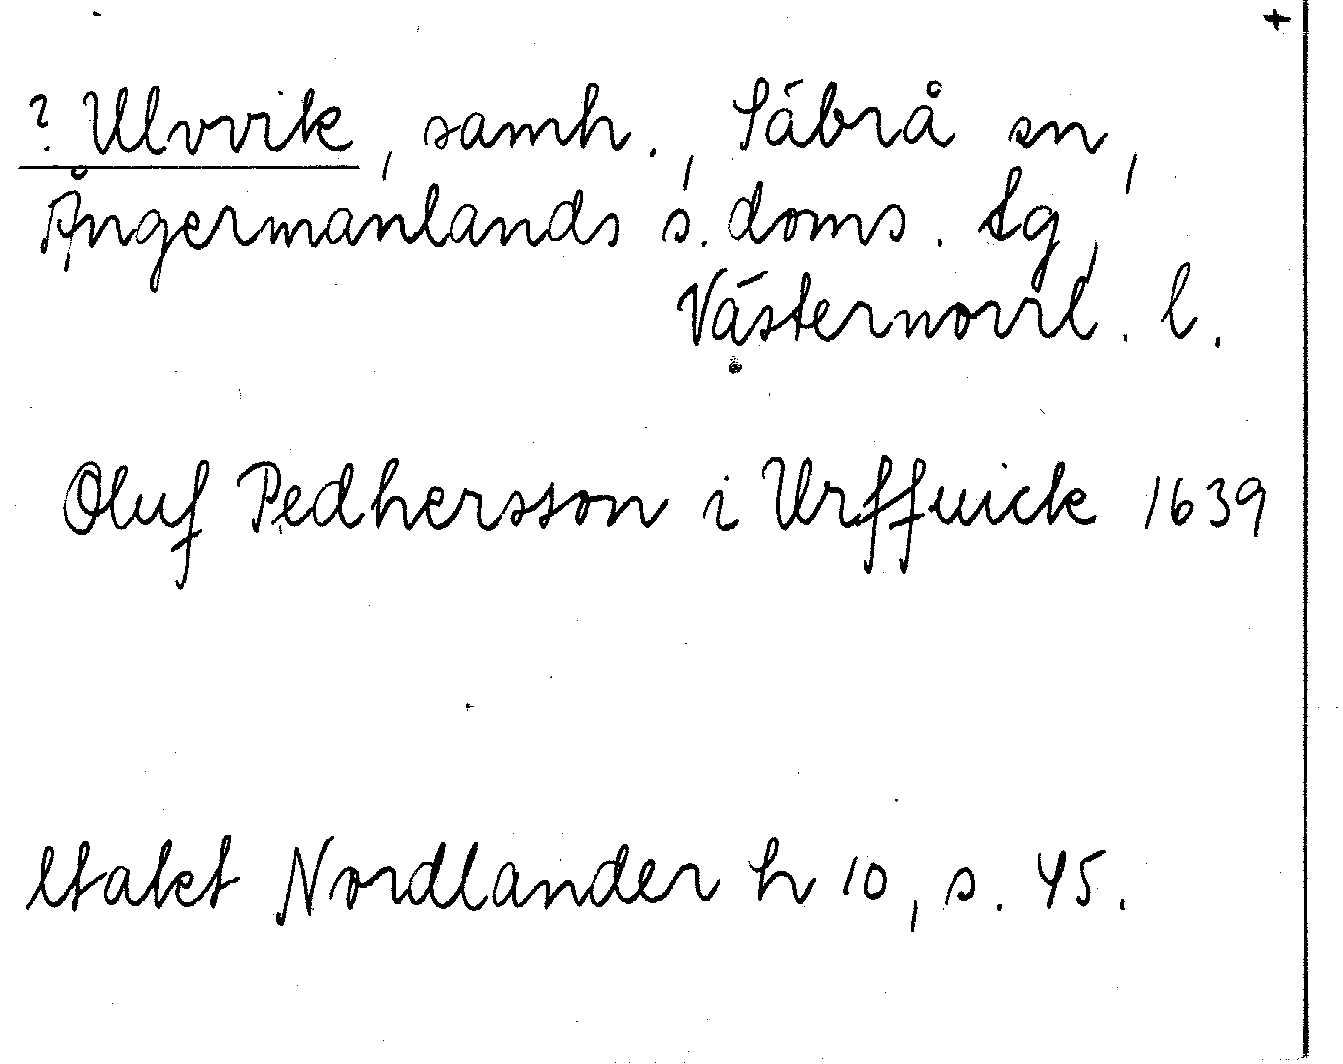 +
? Ulvvik, samh., Säbrå sn,
Ångermanlands s. doms. tg,
Västernorrl. l.
Oluf Pedhersson i Urffuick 1639
Utakt Nordlander h 10, s. 45.